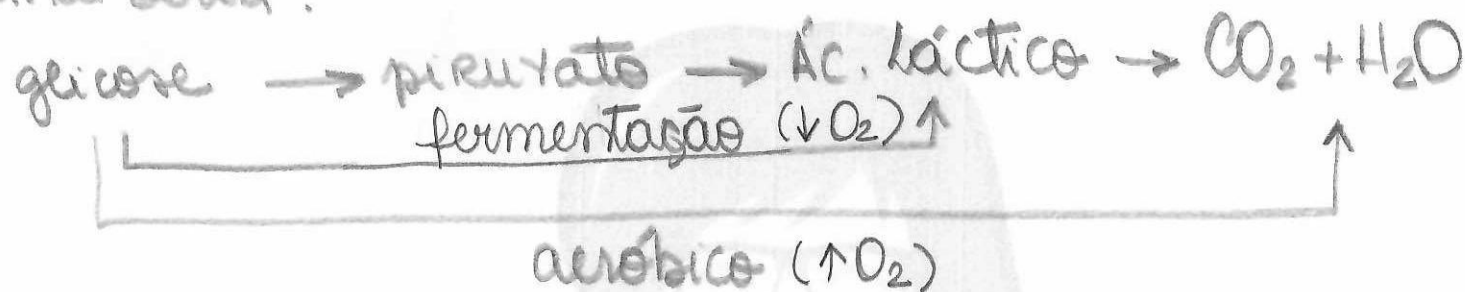 glicose → piruvato → Ác. Láctico → CO₂ + H₂O
fermentação (↓O₂)
aeróbico (↑O₂)